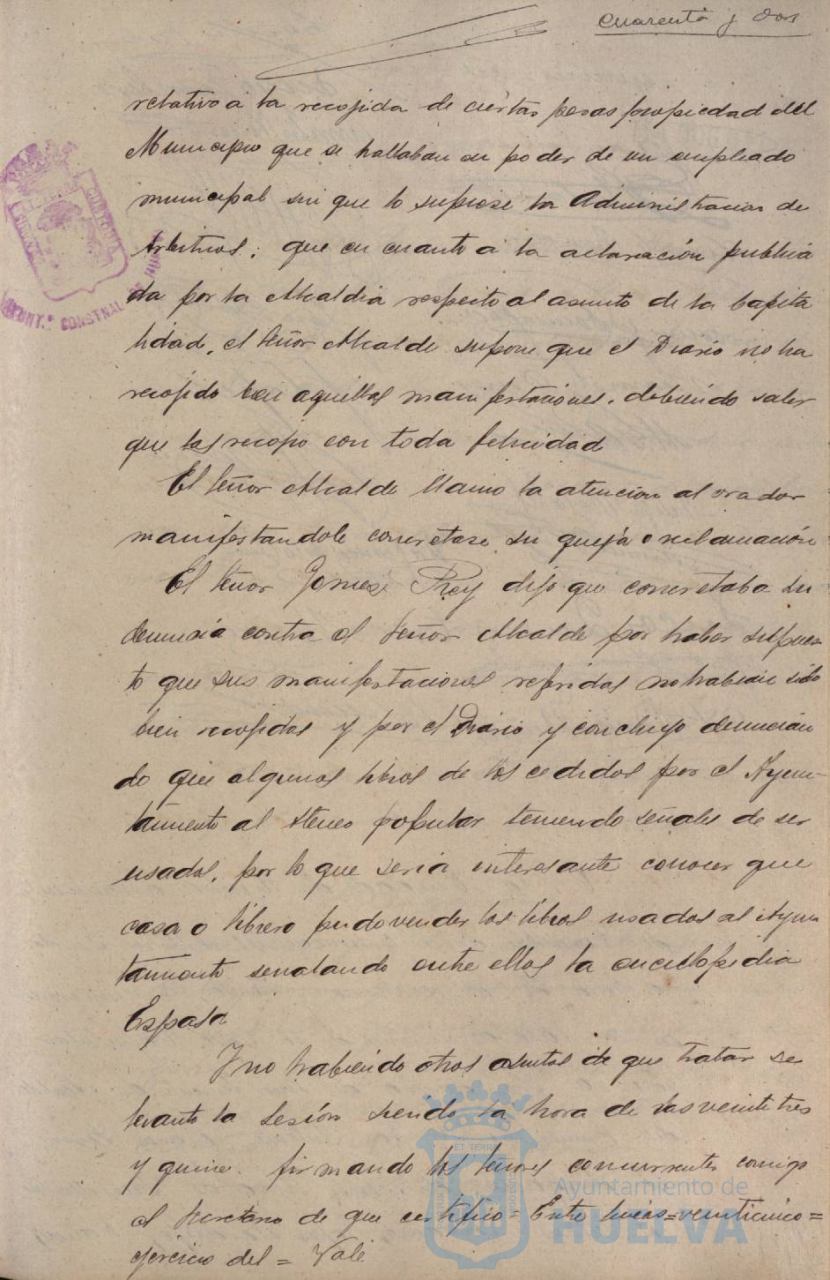 Cuarenta y dos
relativo a la recojida de ciertas pesas propiedad del
Municipio que se hallaban en poder de un empleado
municipal sin que lo supiese la Administracion de
Arbitrios; que en cuanto a la aclaración publica
da por la Alcaldia respecto al asunto de la Capita
lidad, el Señor Alcalde supone que el Diario no ha
recojido bien aquellas manifestaciones, debiendo saber
que las recojio con toda felicidad
El Señor Alcalde llamo la atencion al orador
manifestandole concretase su queja o reclamación
El Señor Jomez Rey dijo que concretaba su
denuncia contra el Señor Alcalde por haber supues
to que sus manifestaciones referidas no habian sido
bien recojidas y por el Diario y concluyo denuncian
do que algunos libros de los cedidos por el Ayun-
tamiento al Ateneo popular teniendo señales de ser
usados, por lo que seria interesante conocer que
casa o librero pudo vender los libros usados al Ayun
tamiento senalando entre ellos la enciclopedia
Espasa
Y no habiendo otros asuntos de que tratar se
levanto la Sesión siendo la hora de las veinte tres
y quince firmando los Señores concurrentes comigo
el Secretario de que certifico = Entre lineas = veinticinco =
ejercicio del = Vale
AYUNT.º CONSTNAL DE HUELVA
Ayuntamiento de
HUELVA